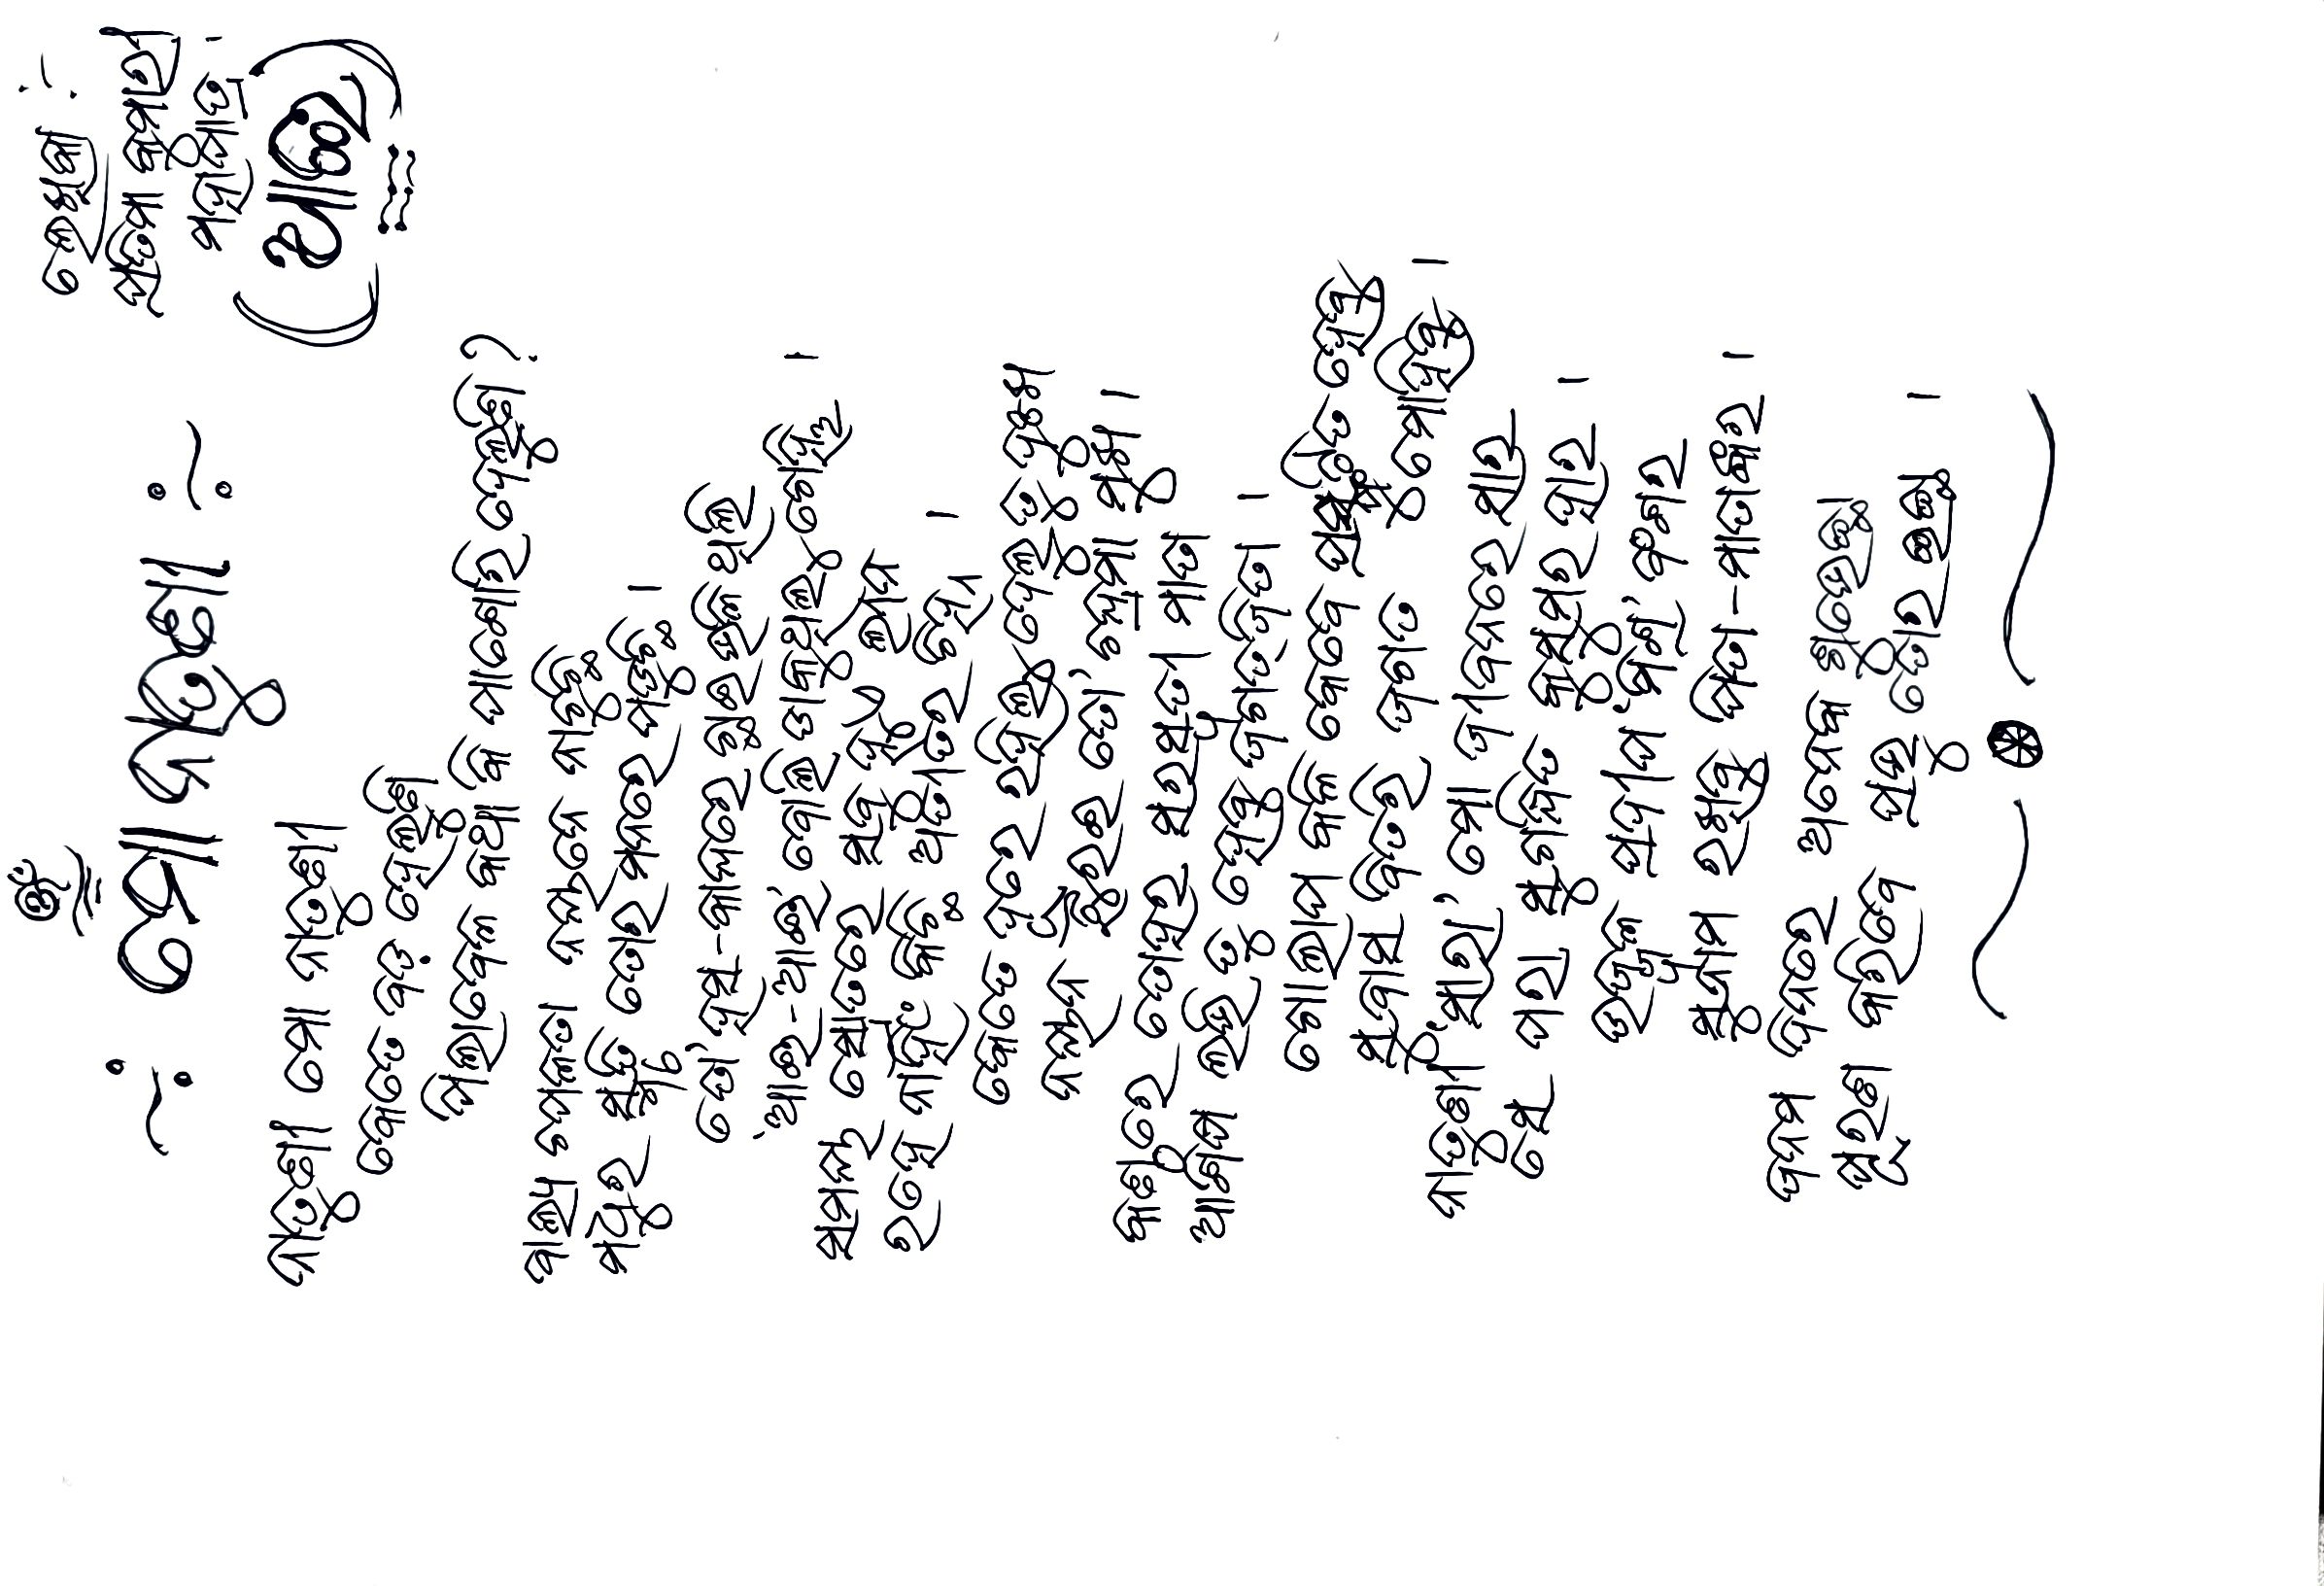 ଓଁ
-: ମୋ ନାତୁଣୀ :-
ଲେଖିକା :-
ପ୍ରତିମା କୁମାରୀ
ମହାପାତ୍ର ।
(ଆଈ)
ନାତୁଣୀ ମୋ ନାତୁଣୀ
କେତେ ବଡ଼ ହେଲୁଣି
ପିଲାବେଳ କଥା କି ପାଶୋରି ଦେଲୁଣି ?
ବାଲ୍ୟ ଚପଳତା ନୟନେ ନାଚୁଛି
ମଧୁର ସ୍ମୃତି ତୋର ମନରେ ପଡୁଛି ।
ତୋ' ହସ-କାନ୍ଦରେ ଝୁଲି ଥିଲି
'ଆଈ-ଆଈ' ବୋଲି ଡାକୁଥିଲୁ ଗେହ୍ଲି ।
ସମୟ ସ୍ରୋତରେ ସବୁ ହୁଏ ଲୀନ
ରହେ ନାହିଁ କିଛି ଅତୀତର ଚିହ୍ନ ।
କେତେ ଦୂରେ ରହିଲୁ ଦେଲୁ ତୁ ଦୁଃଖ
ନୟନ ଝୁରଇ ତୋ' ଚନ୍ଦ୍ରମା ମୁଖ ।
କଣ୍ଠରେ ତୋହର ସରସ୍ୱତୀ ମାତା
ଆଶିଷ ଲଭି ତୁ ହେବୁ ଜଗତ୍‌ଜିତା ।
ଗୋଲାପ କଳି କେବେ ପ୍ରସ୍ଫୁଟିତ ହେବୁ
ସୁବାସ ବିତରି ଜଗତ ମୋହିବୁ ।
ନାତୁଣୀ 'ସାରା' ମୋ ଜୀବନରେ ସାର
ସେ ପରା ସୁଗନ୍ଧିତ କୁସୁମର ହାର ।
ଉଜ୍ଜ୍ୱଳ ପ୍ରଦୀପ 'ମିଶ୍ର' ବଂଶର
ସୁନାମ ରଖିବୁ ପିତା-ମାତାଙ୍କର ।
ଜନମ ଦିନରେ ଅନେକ ଶୁଭେଚ୍ଛା
ପୂରଣ କରିବେ ପ୍ରଭୁ ତୋର ଇଚ୍ଛା ।